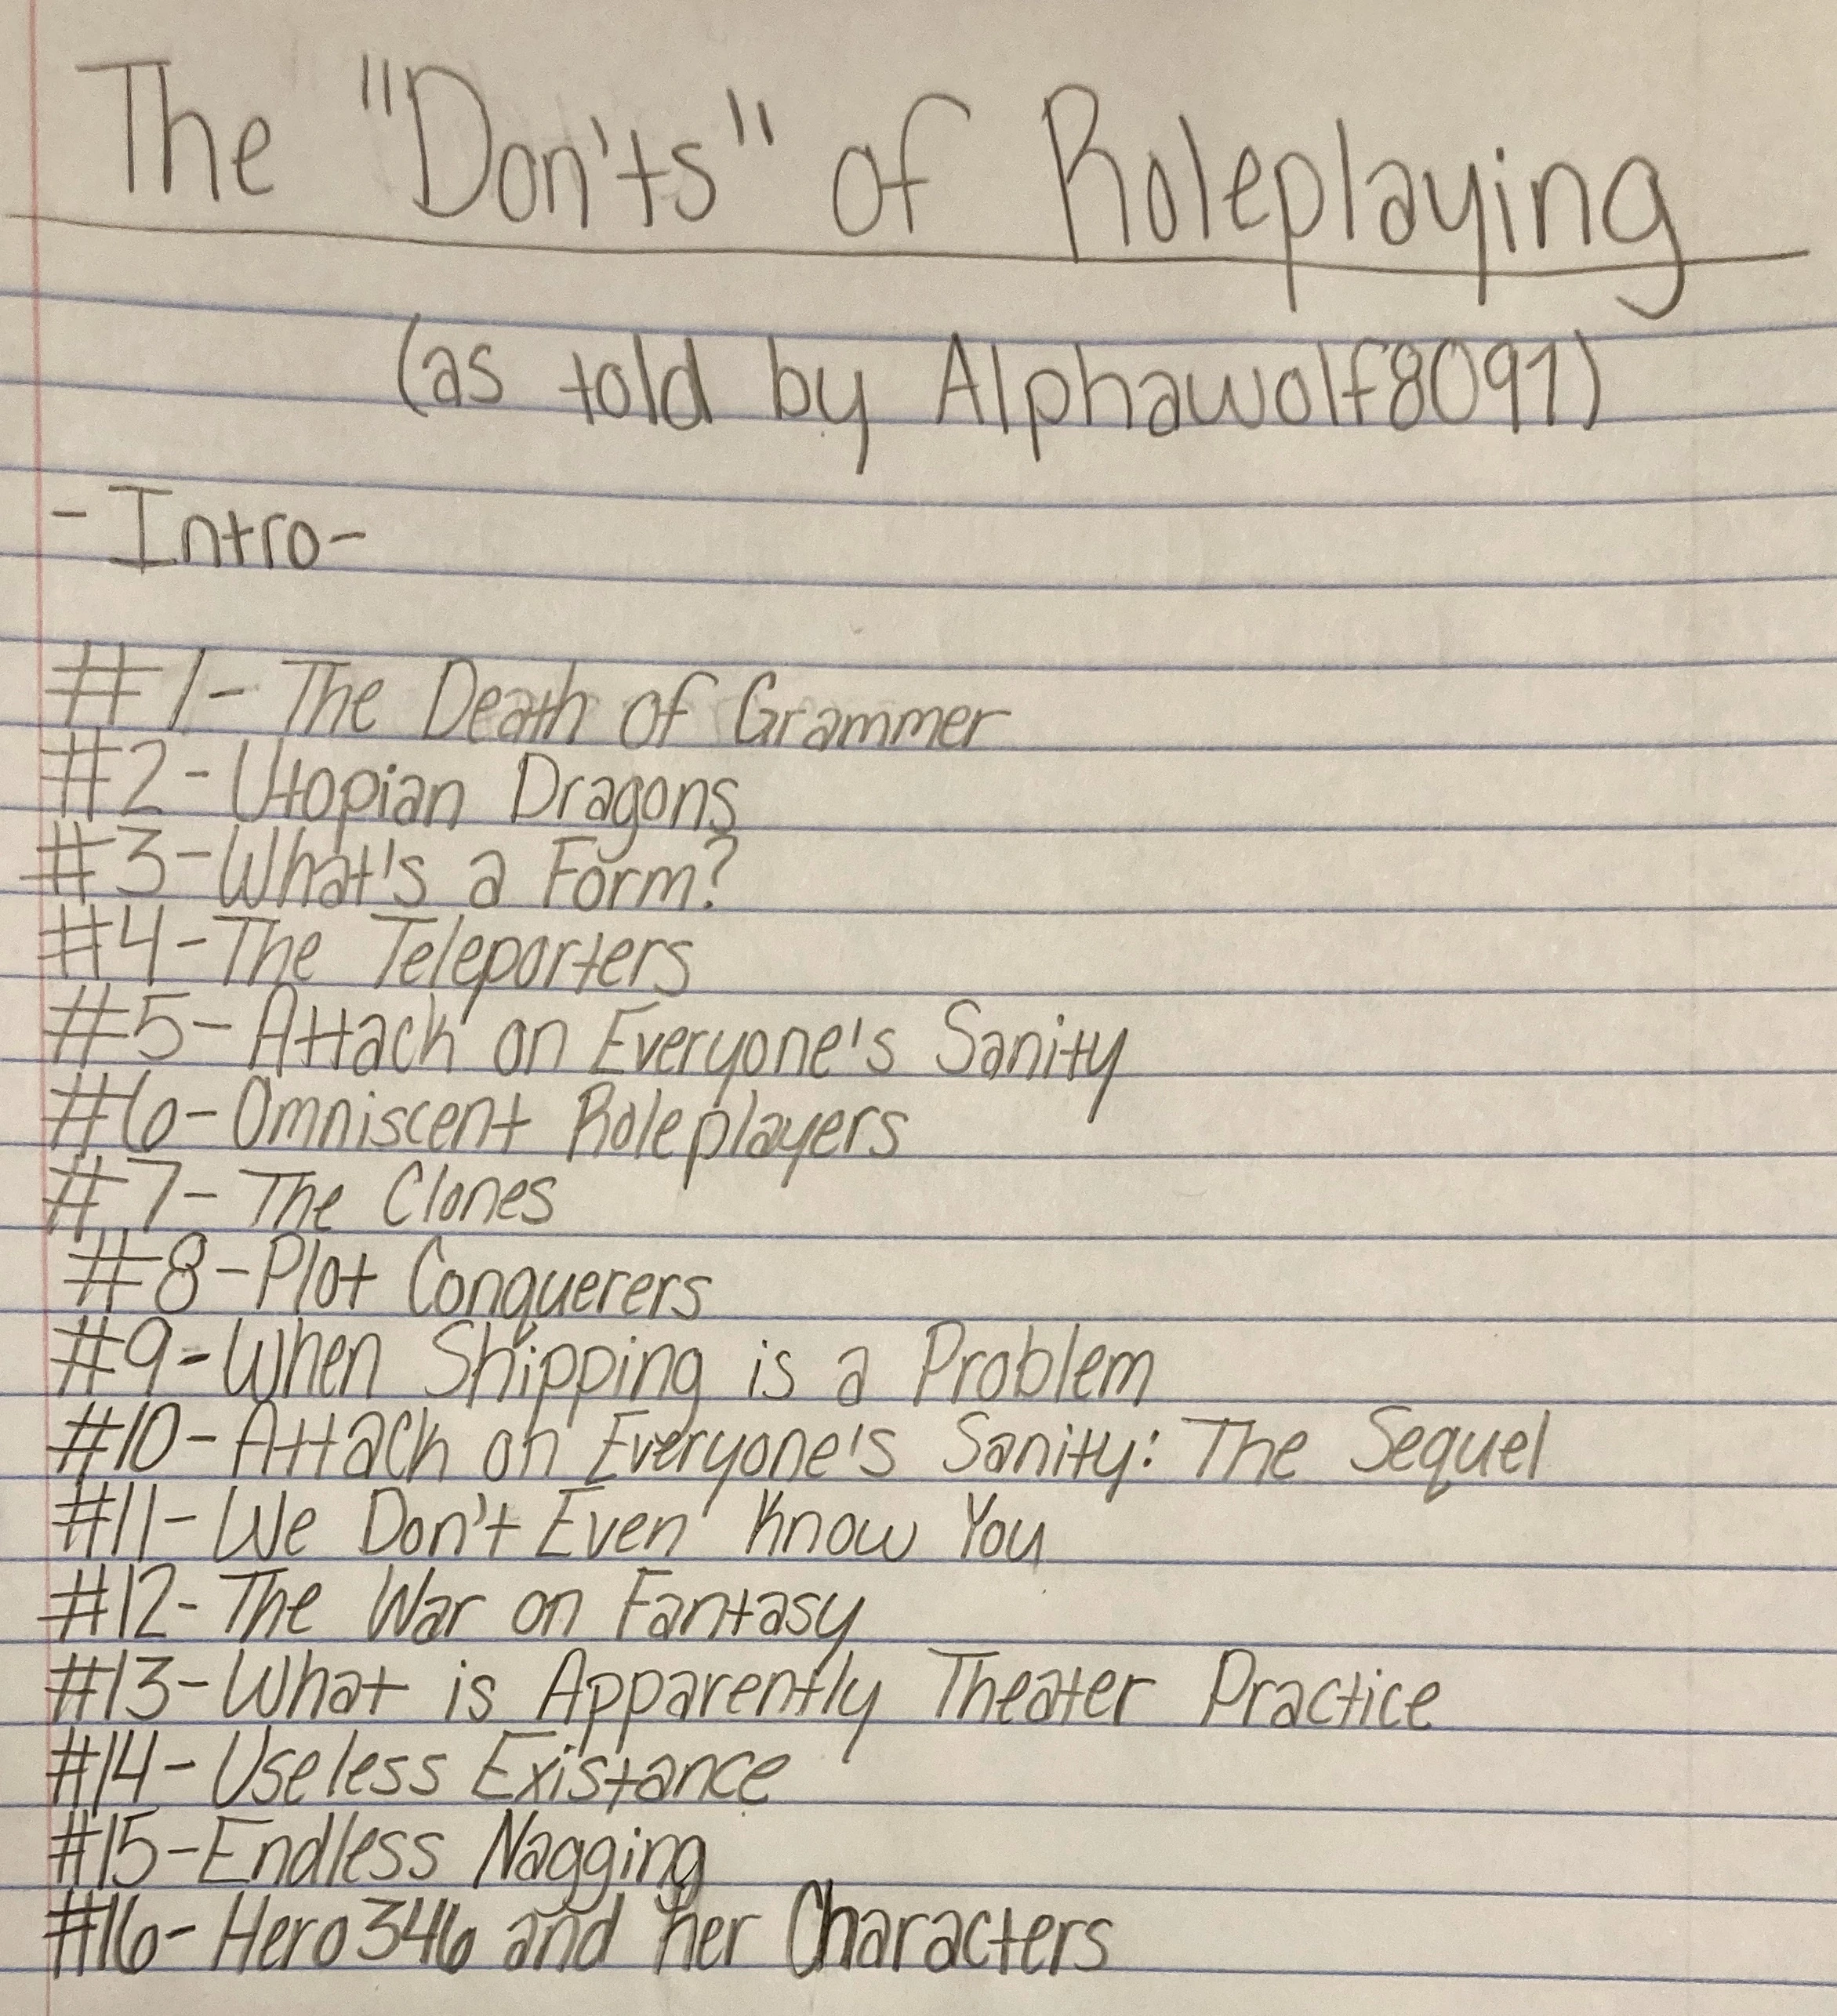 The "Don'ts" of Roleplaying
(as told by Alphawolf8091)
-Intro-
#1- The Death of Grammer
#2- Utopian Dragons
#3-What's a Form?
#4-The Teleporters
#5- Attack on Everyone's Sanity
#6- Omniscent Roleplayers
#7- The Clones
#8-Plot Conquerers
#9-When Shipping is a Problem
#10- Attack on Everyone's Sanity: The Sequel
#11- We Don't Even Know You
#12- The War on Fantasy
#13-What is Apparently Theater Practice
#14- Useless Existance
#15-Endless Nagging
#16- Hero346 and her Characters